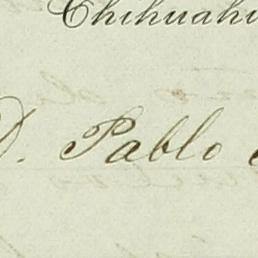 Chihuahu
D. Pablo